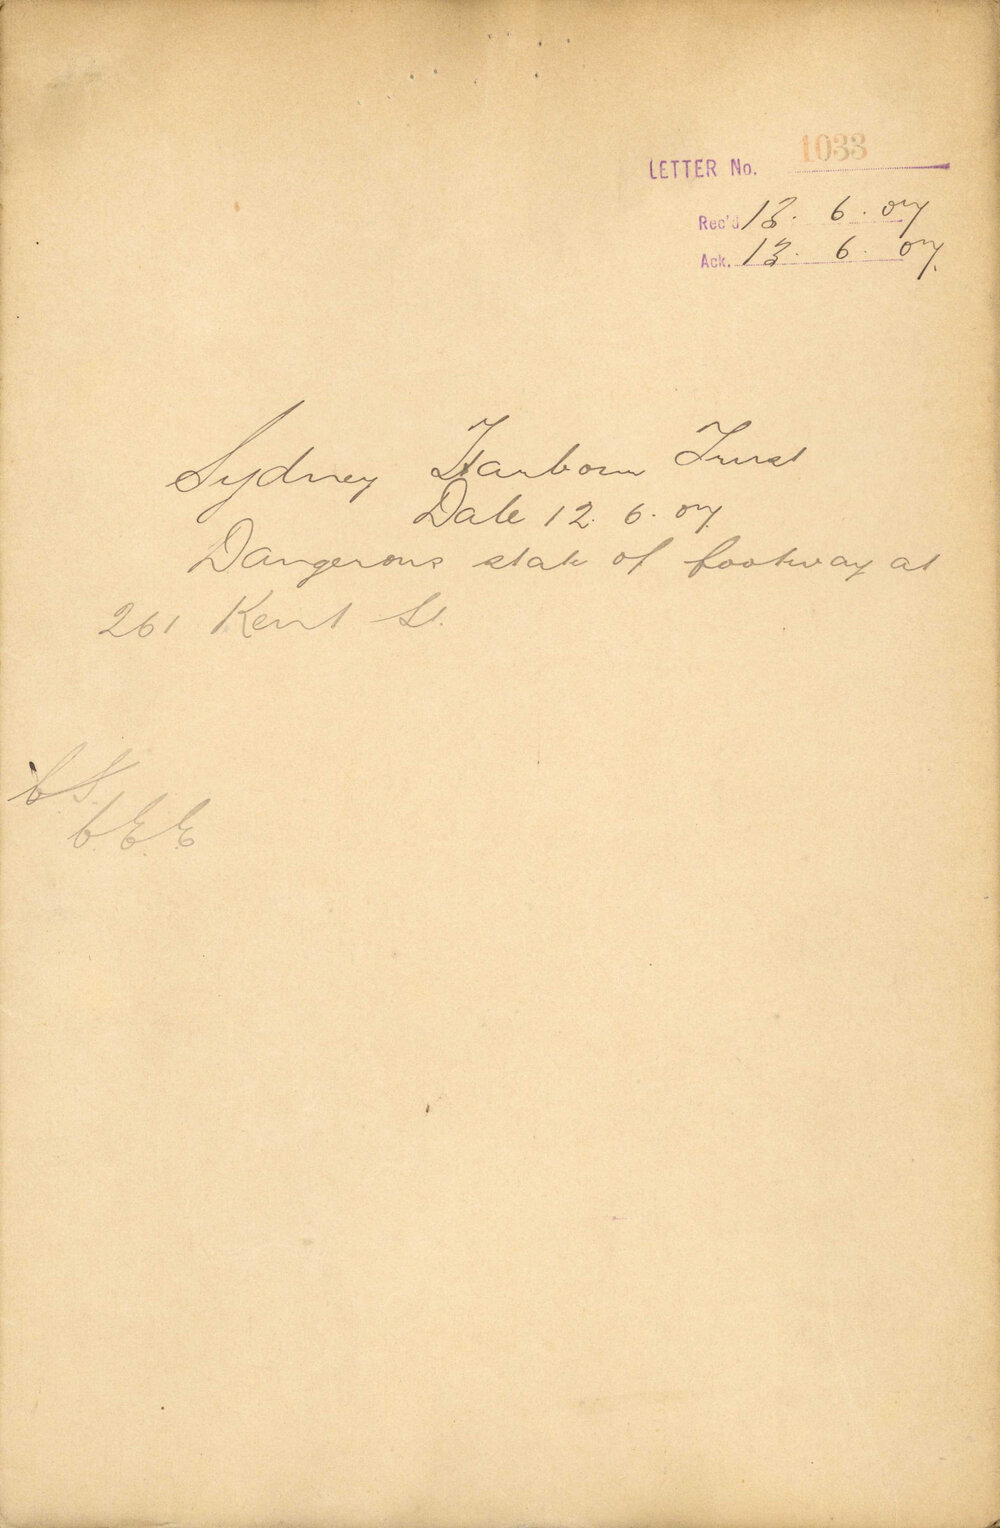 LETTER No. 1033
Rec'd 13. 6. 07
Ack. 13. 6. 07.
Sydney Harbour Trust
Date 12. 6. 07.
Dangerous state of footway at
261 Kent St.
C.E.E